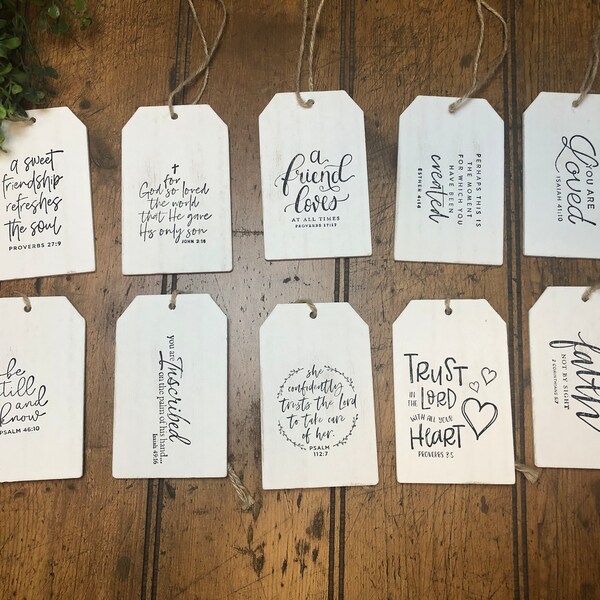 a sweet
friendship
refreshes
the soul
PROVERBS 27:9
for
God so loved
the world
that He gave
His only son
JOHN 3:16
a
friend
loves
AT ALL TIMES
PROVERBS 17:17
PERHAPS THIS IS
THE MOMENT
FOR WHICH YOU
HAVE BEEN
created
ESTHER 4:14
YOU ARE
Loved
ISAIAH 41:10
be
still
and
know
PSALM 46:10
you are
Inscribed
on the palm of his hand...
Isaiah 49:16
she
confidently
trusts the Lord
to take care
of her.
PSALM
112:7
TRUST
IN THE
LORD
WITH ALL YOUR
HEART
PROVERBS 3:5
faith
NOT BY SIGHT
2 CORINTHIANS 5:7